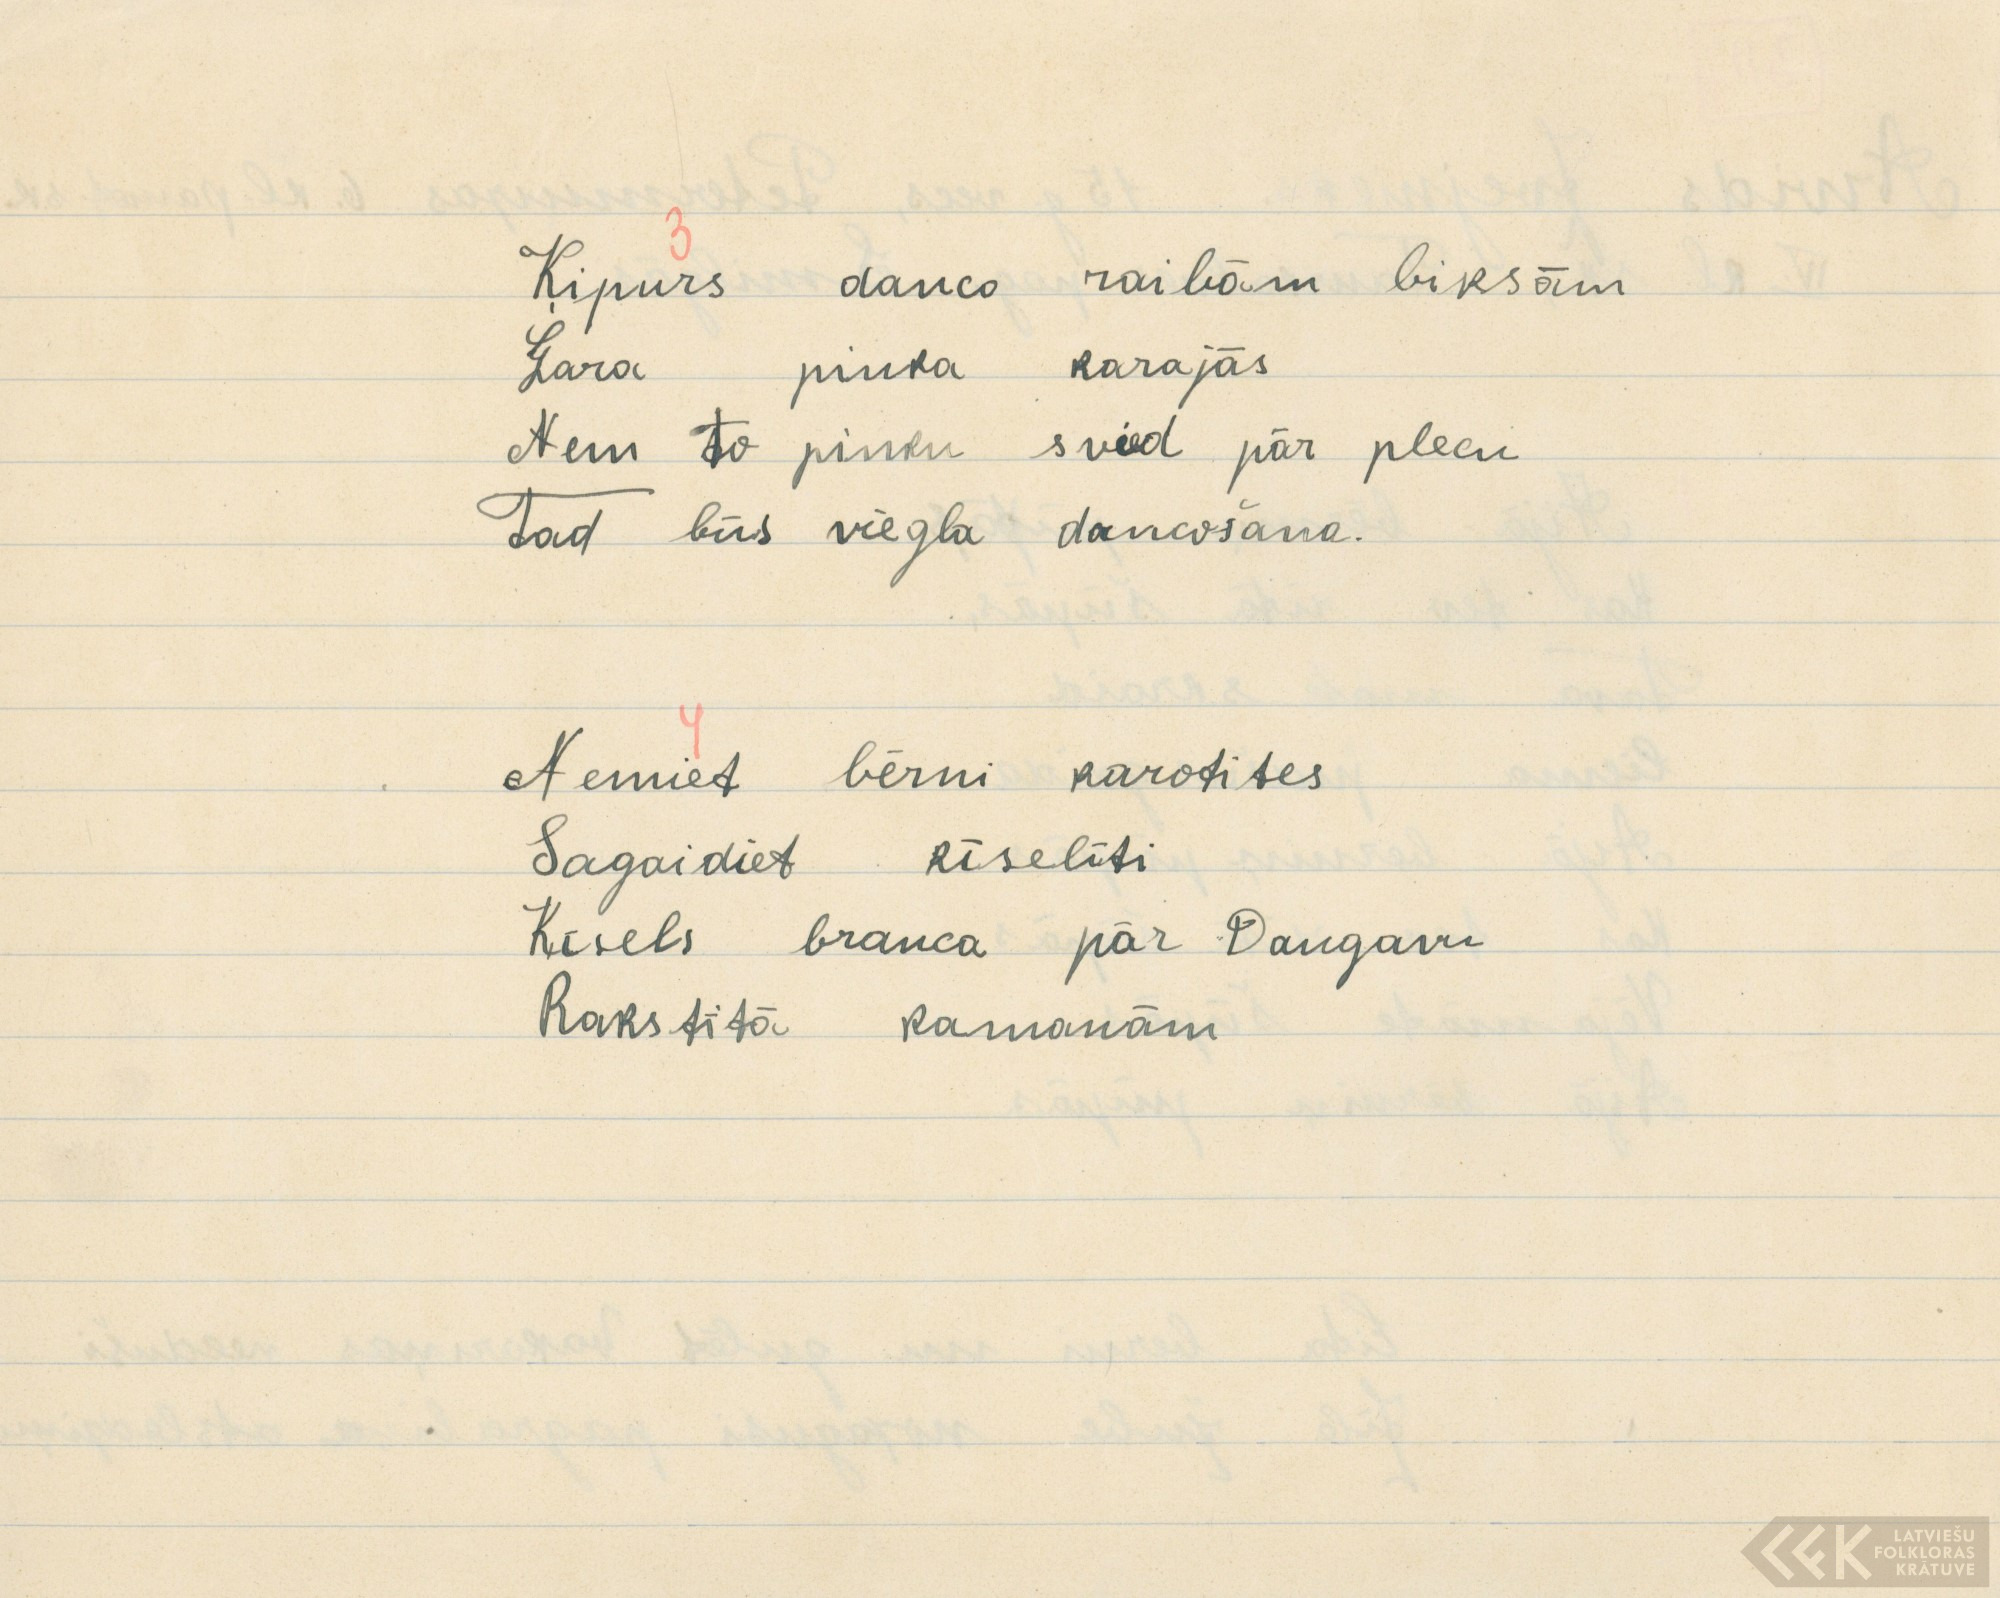 3
Ķipurs danco raibām biksām
Gara pinka karajās
Nem to pinku svied pār plecu
Tad būs viegla dancošana.
4
Nemiet bērni karotites
Sagaidiet ķīselīti
Ķīsels brauca pār Daugavu
Rakstītā kamanām
LATVIEŠU
FOLKLORAS
KRĀTUVE